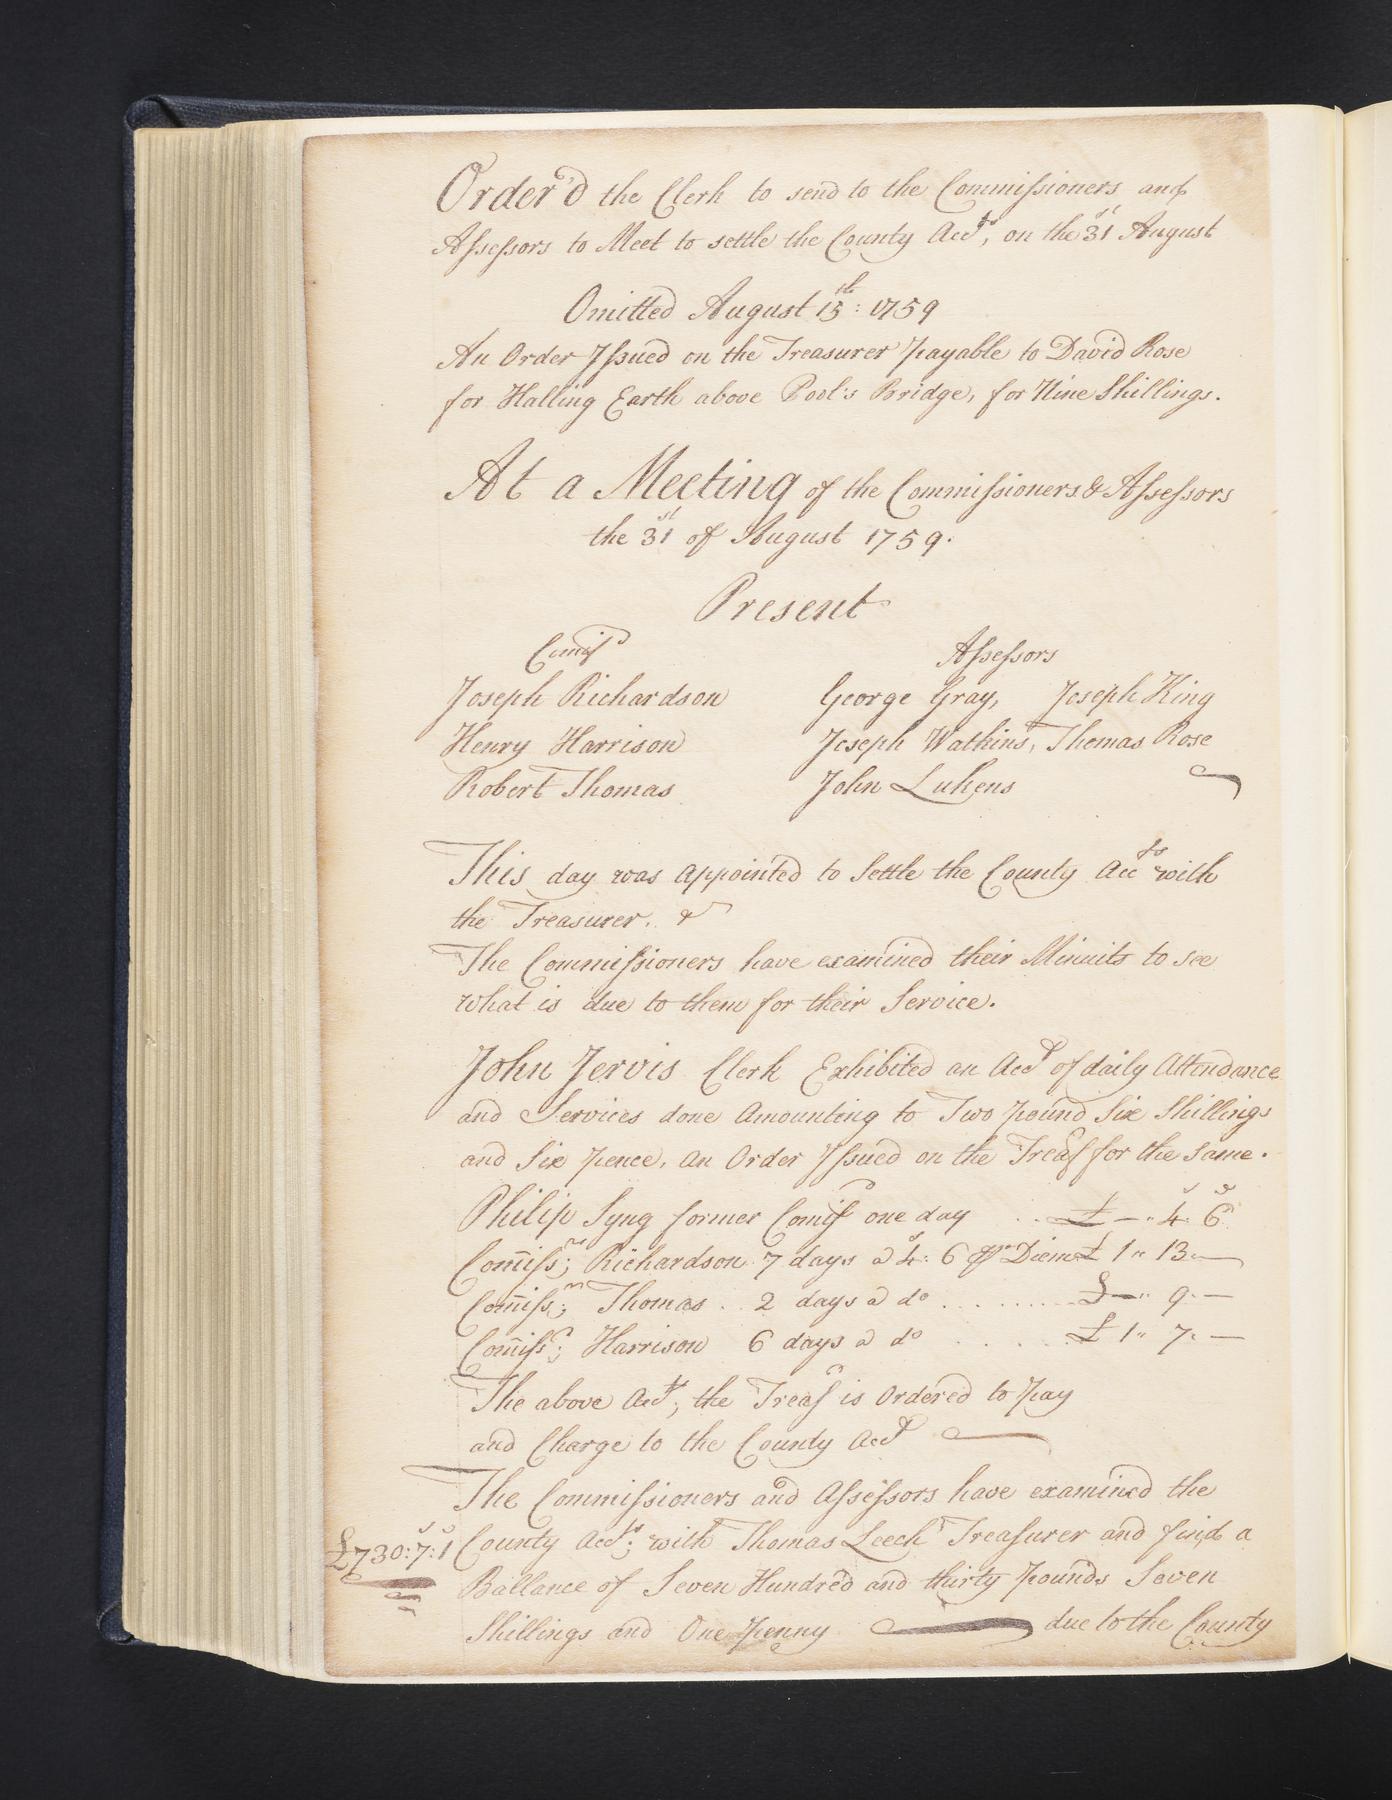 Order'd the Clerk to send to the Commissioners and
Assessors to Meet to settle the County Accts, on the 31st August
Omitted August 15th: 1759
An Order Issued on the Treasurer payable to David Rose
for Halling Earth above Pool's Bridge, for Nine Shillings.
At a Meeting of the Commissioners & Assessors
the 31st of August 1759.
Present
Comiss
Assessors
Joseph Richardson
George Gray, Joseph King
Henry Harrison
Joseph Watkins, Thomas Rose
Robert Thomas
John Lukens
This day was appointed to Settle the County Accts with
the Treasurer. &
The Commissioners have examined their Minuits to see
what is due to them for their Service.
John Jervis Clerk Exhibited an Acct of daily Attendance
and Services done Amounting to Two pound Six Shillings
and Six pence, an Order Issued on the Treasr for the Same.
Philip Syng former Comissr one day .. £ —" 4: 6
Comissr; Richardson 7 days @ 4s: 6 pr Diem £ 1" 13 —
Comissr; Thomas .. 2 days @ do ......... £ —" 9 —
Comissr; Harrison 6 days @ do .... £ 1" 7 —
The above Acct; the Treasr is Ordered to pay
and Charge to the County Acct
The Commissioners and Assessors have examined the
£730:7:1 County Accts; with Thomas Leech Treasurer and find a
Ballance of Seven Hundred and thirty pounds Seven
Shillings and One penny due to the County